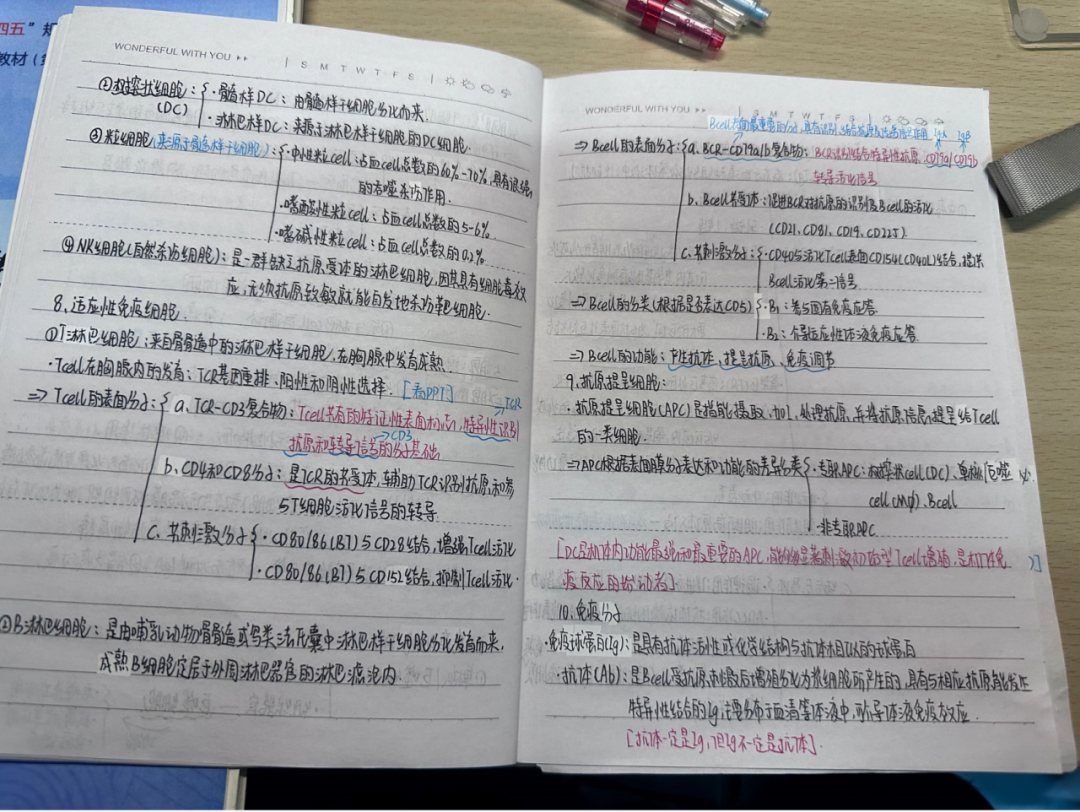 四五”规
教材(
WONDERFUL WITH YOU
S M T W T F S
②树突状细胞: ·髓样DC: 由骨髓样干细胞分化而来.
(DC) ·淋巴样DC: 来源于淋巴样干细胞的DC细胞.
③粒细胞(来源于骨髓样干细胞): ·中性粒cell: 占血cell总数的60%-70%,具有很强
的吞噬杀伤作用.
·嗜酸性粒cell: 占血cell总数的5-6%.
·嗜碱性粒cell: 占血cell总数的0.2%.
④NK细胞(自然杀伤细胞): 是一群缺乏抗原受体的淋巴细胞,因其具有细胞毒效
应,无须抗原致敏就能自发地杀伤靶细胞.
8、适应性免疫细胞.
①T淋巴细胞: 来自骨髓中的淋巴样干细胞,在胸腺中发育成熟.
·Tcell在胸腺内的发育: TCR基因重排、阳性和阴性选择. [看PPT]
TCR
⇒ Tcell的表面分子: a、TCR-CD3复合物: Tcell共有的特征性表面标志,特异性识别
抗原和转导信号的分子基础.
CD3
b、CD4和CD8分子: 是TCR的共受体,辅助TCR识别抗原和参
与T细胞活化信号的转导.
C、共刺激分子 ·CD80/86(B7)与CD28结合,增强Tcell活化
·CD80/86(B7)与CD152结合,抑制Tcell活化.
②B淋巴细胞: 是由哺乳动物骨髓或鸟类法氏囊中淋巴样干细胞分化发育而来,
成熟B细胞定居于外周淋巴器官的淋巴滤泡内.
WONDERFUL WITH YOU
S M T W T F S
Bcell表面最重要的分子,具有识别、结合抗原
Igα Igβ
⇒ Bcell的表面分子: a、BCR-CD79a/b复合物: BCR识别结合特异性抗原,CD79a/CD79b
转导活化信号
b、Bcell共受体: 促进BCR对抗原的识别及Bcell的活化
(CD21、CD81、CD19、CD225)
C、共刺激分子: ·CD40与活化Tcell表面CD154(CD40L)结合,提供
Bcell活化第二信号
⇒ Bcell的分类(根据是否表达CD5) ·B₁: 参与固有免疫应答
·B₂: 介导适应性体液免疫应答
⇒ Bcell的功能: 产生抗体、提呈抗原、免疫调节
9、抗原提呈细胞:
·抗原提呈细胞(APC)是指能摄取、加工、处理抗原,并将抗原信息提呈给Tcell
的一类细胞.
⇒ APC根据表面膜分子表达和功能的差异分类 ·专职APC: 树突状cell(DC)、单核/巨噬
cell(Mφ)、Bcell
·非专职APC
[DC是机体内功能最强和最重要的APC,能够显著刺激初始型Tcell增殖,是机体免
疫反应的始动者]
10、免疫分子
·免疫球蛋白(Ig): 是具有抗体活性或化学结构与抗体相似的球蛋白
·抗体(Ab): 是Bcell受抗原刺激后增殖分化为浆细胞所产生的,具有与相应抗原能发生
特异性结合的Ig,主要分布于血清等体液中,可介导体液免疫效应.
[抗体一定是Ig,但Ig不一定是抗体].